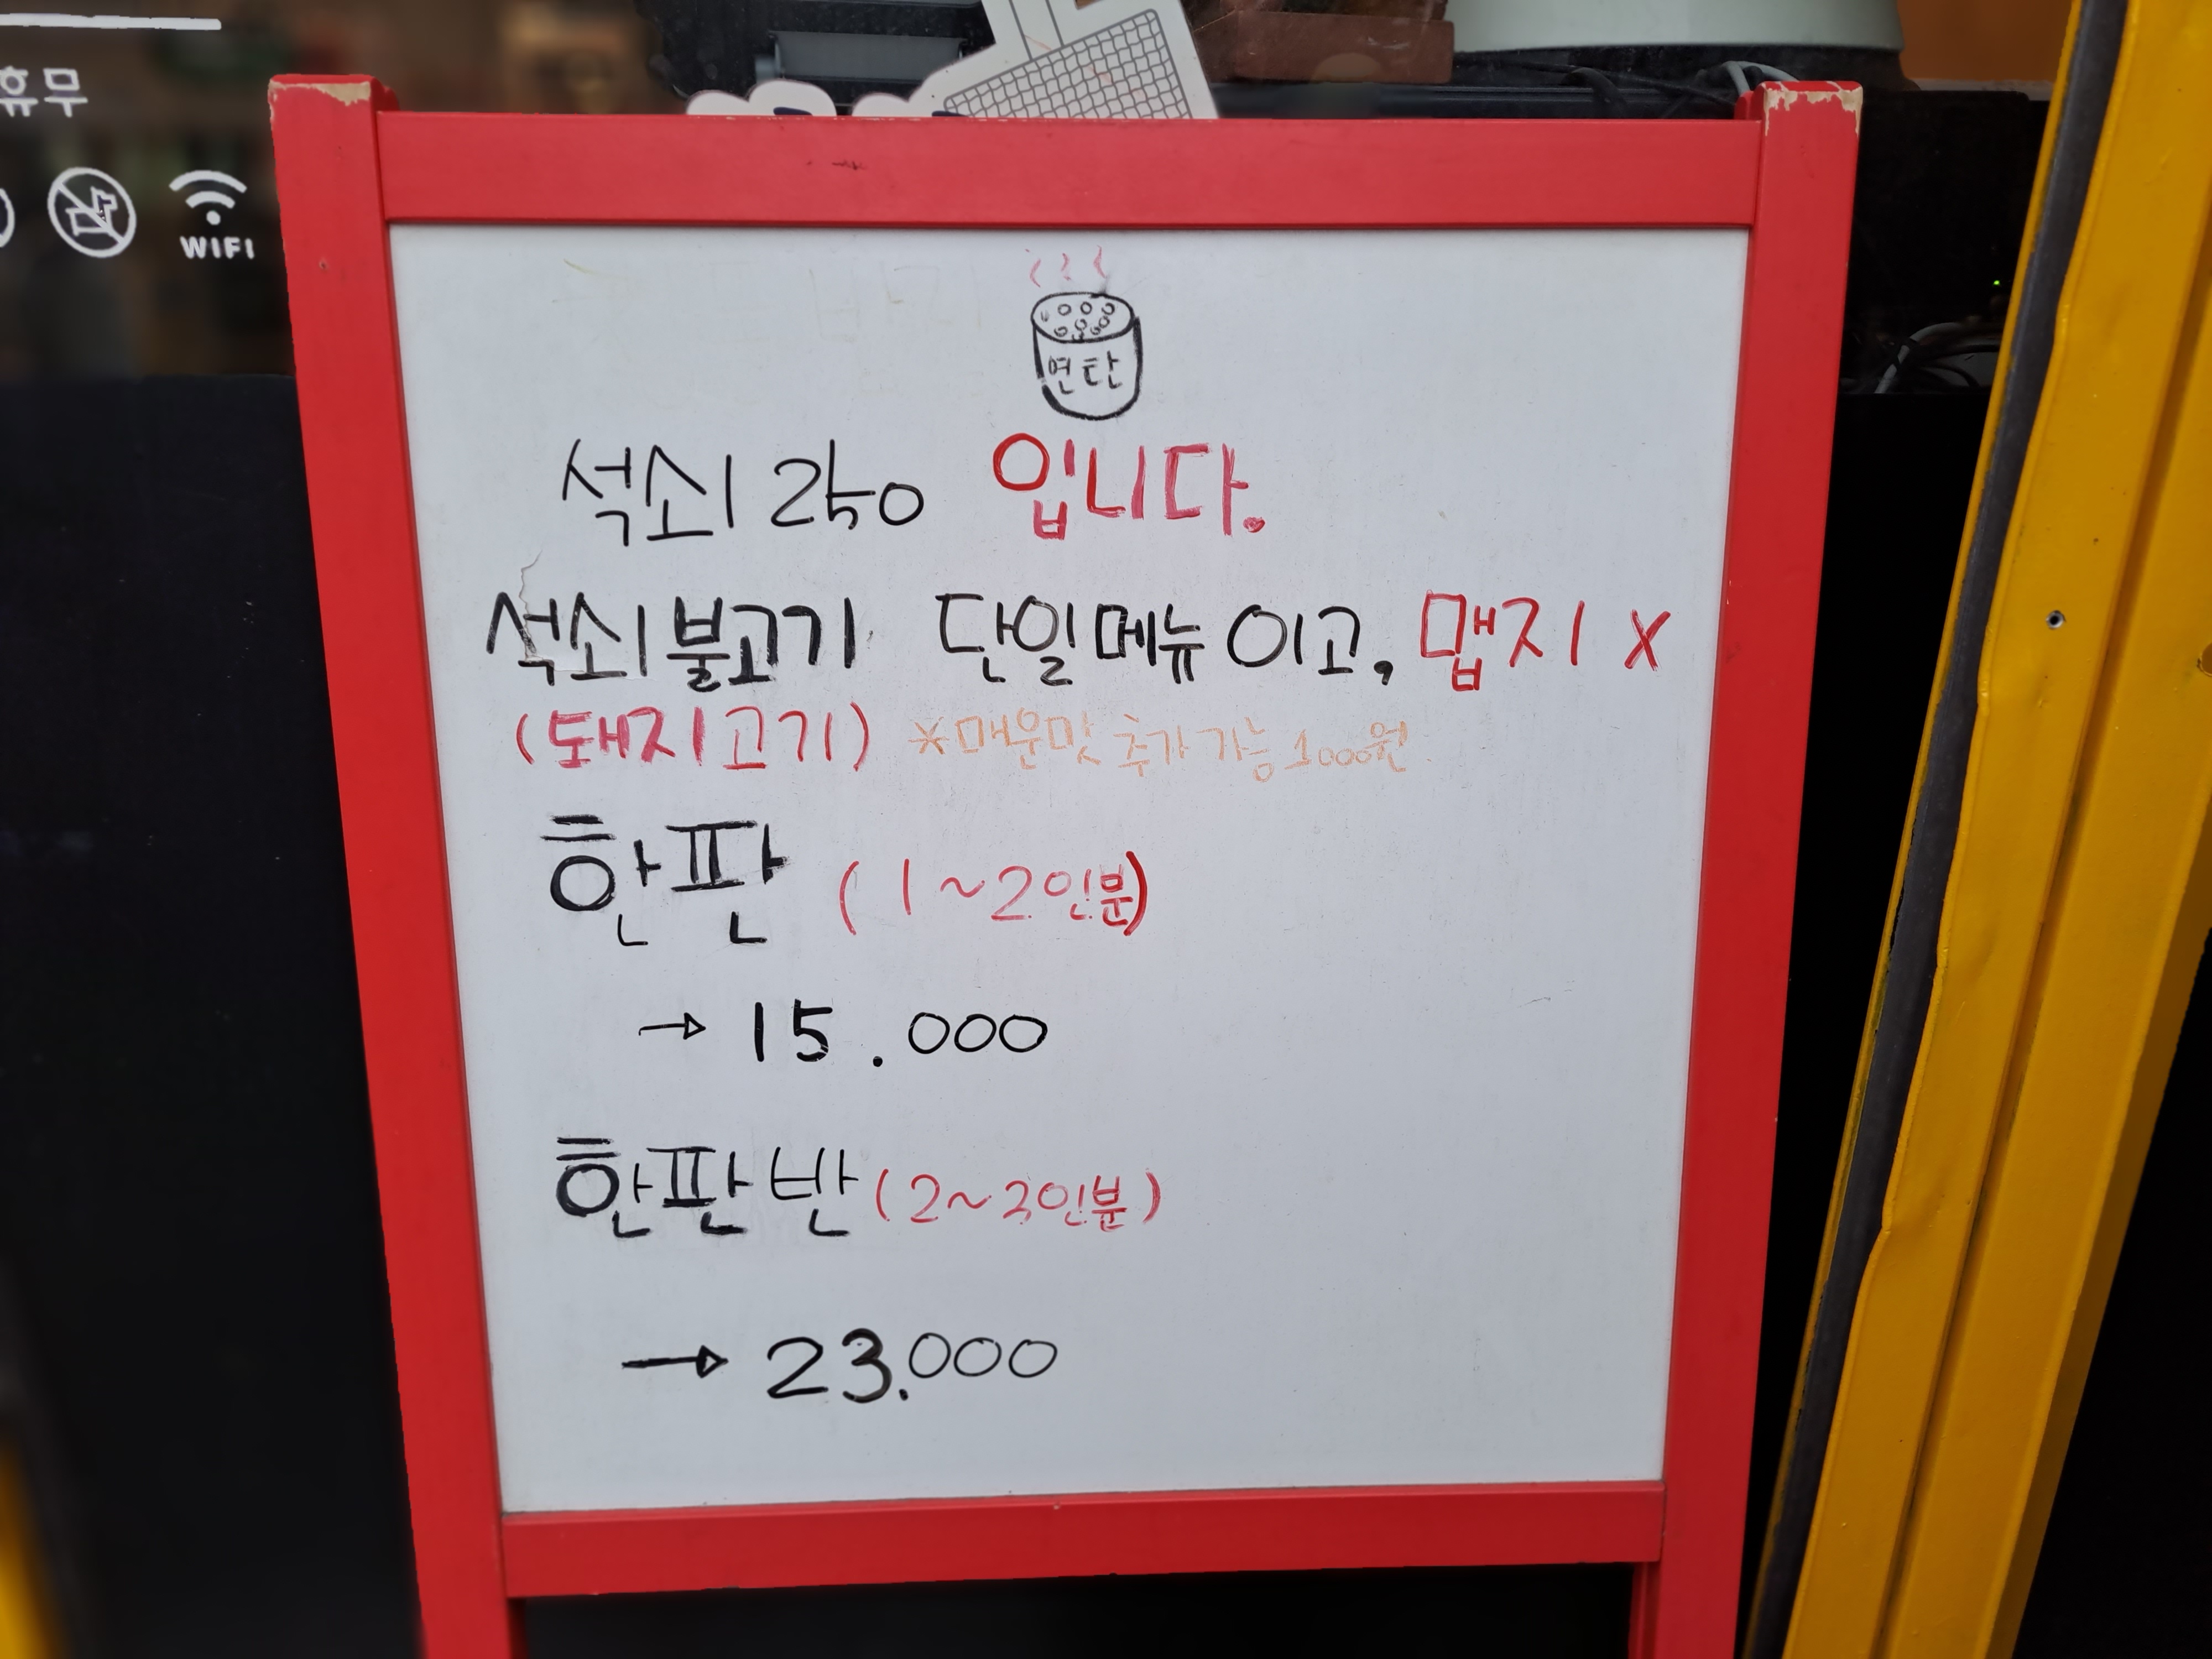 휴무
WIFI
연탄
석쇠 입니다.
석쇠불고기 단일메뉴이고, 맵지 X
(돼지고기) *매운맛 추가 가능 1000원
한판 (1~2인분)
→ 15.000
한판반 (2~3인분)
→ 23.000